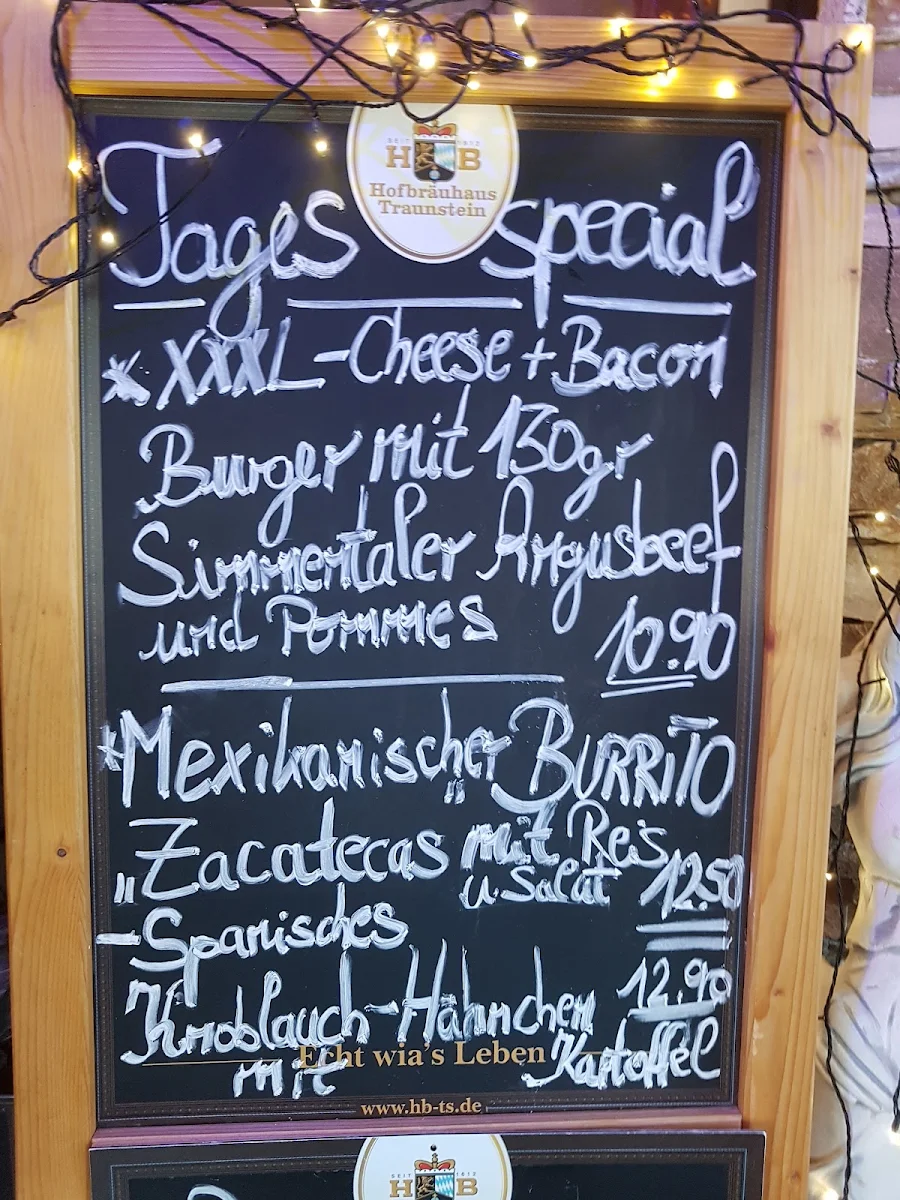 SEIT 1612
H B
Hofbräuhaus
Traunstein
Tages special
* XXXL-Cheese + Bacon
Burger mit 130gr
Simmentaler Angusbeef
und Pommes 10.90
* Mexikanischer BURRITO
"Zacatecas" mit Reis
u Salat 12.50
- Spanisches
12.90
Knoblauch-Hähnchen
mit Kartoffel
Echt wia's Leben
www.hb-ts.de
SEIT 1612
H B